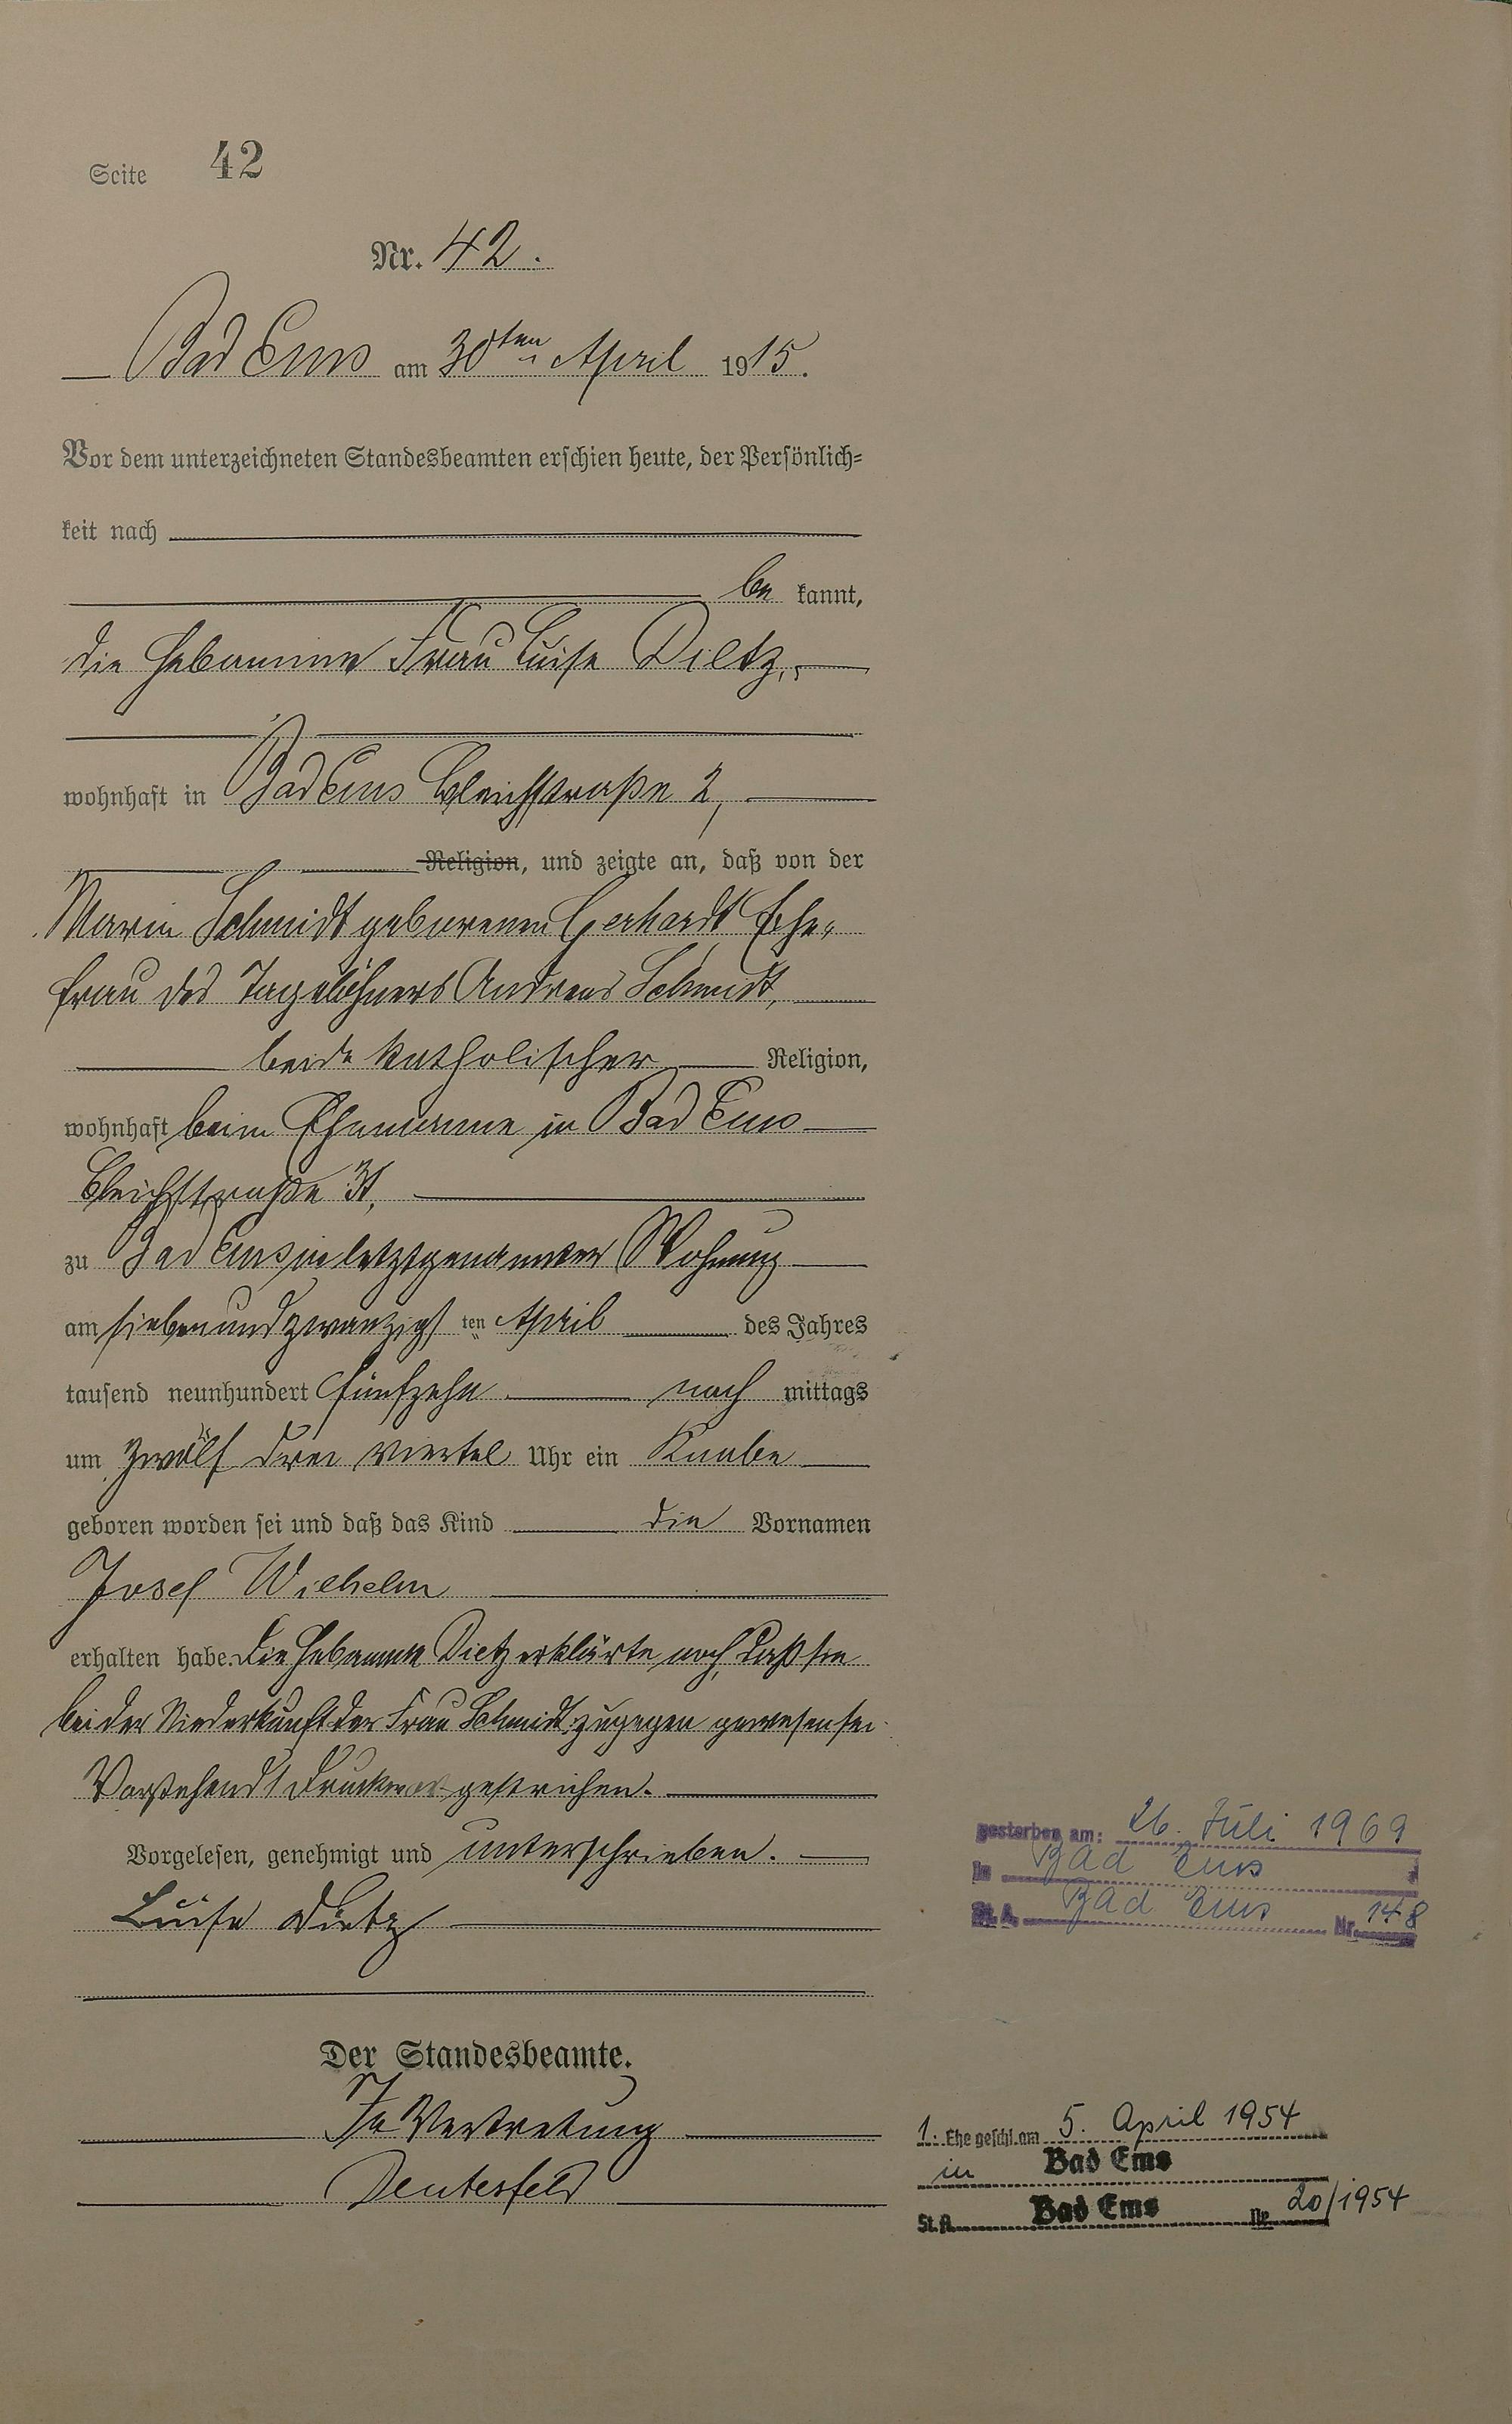 Seite 42
Nr. 42.
Bad Ems am 30ten April 1915.
Vor dem unterzeichneten Standesbeamten erschien heute, der Persönlich=
keit nach
be kannt,
die Hebamme Frau Luise Dietz,
wohnhaft in Bad Ems Bleichstraße 2,
Religion, und zeigte an, daß von der
Maria Schmidt geborenen Gerhardt Ehe=
frau des Tagelöhners Andreas Schmidt,
beide katholischer Religion,
wohnhaft beim Ehemanne in Bad Ems
Bleichstraße
zu Bad Ems in letztgenannter Wohnung
am siebenundzwanzigsten April des Jahres
tausend neunhundert fünfzehn nach mittags
um zwölf drei viertel Uhr ein Knabe
geboren worden sei und daß das Kind die Vornamen
Josef Wilhelm
erhalten habe. Die Hebamme Dietz erklärte noch, daß sie
bei der Niederkunft der Frau Schmidt zugegen gewesen sei.
Vorstehend 1 Druckwort gestrichen.
Vorgelesen, genehmigt und unterschrieben.
Luise Dietz
Der Standesbeamte.
In Vertretung
Deutesfeld
gestorben am: 26. Juli 1969
in Bad Ems
St. A. Bad Ems Nr. 148
1. Ehe geschl. am 5. April 1954
in Bad Ems
St. A. Bad Ems Nr. 20/1954